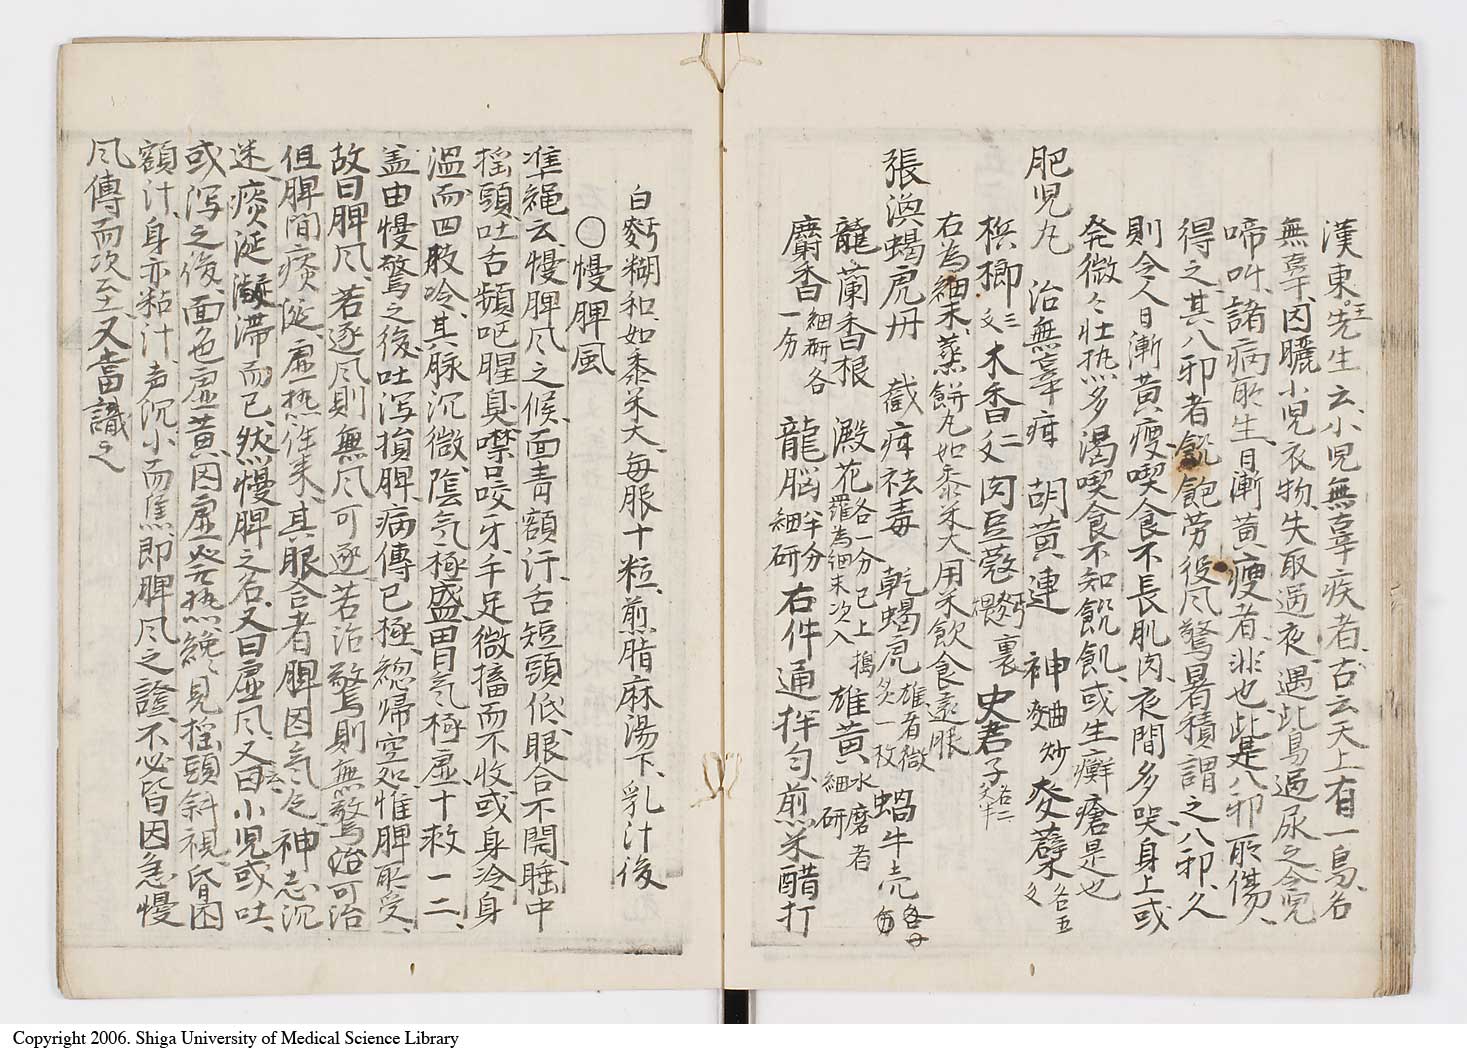 漢東王先生云、小児無辜疾者、古云天上有一鳥、名
無辜、因曬小児衣物、失取過夜、遇此鳥過尿之令児
啼叫、諸病所生、日漸黄瘦者、非也、此是八邪所傷、
得之其八邪者飢飽労役風驚暑積謂之八邪、久
則令人日漸黄瘦喫食不長肌肉、夜間多哭、身上或
発微々壮热多渇喫食不知飢飽、或生癬瘡是也
肥児丸 治無辜疳 胡黄連 神麹炒 麥蘖各五文
檳榔三文 木香二文 肉豆蔻麪裹煨 史君子各二文半
右為細末、蒸餅丸如黍米大、用米飲食遠服
張渙蝎虎丹 截疳祛毒 乾蝎虎雄者微炙一枚 蝸牛売
龍蘭香根 澱花各一分已上擣羅為細末次入 雄黄水磨者細研
麝香一分細研各 龍脳半分細研 右件通拌匀、煎米醋打
白麪糊和、如黍米大、毎服十粒、煎脂麻湯下、乳汁後
○慢脾風
準縄云、慢脾风之候、面青額汗、舌短頭低、眼合不開、睡中
揺頭、吐舌頻呕腥臭、噤口咬牙、手足微搐而不收、或身冷身
温而四肢冷、其脉沉微、陰気極盛、胃気極虚、十救一二、
盖由慢驚之後、吐瀉損脾、病傳已極、緫帰空処惟脾所受、
故曰脾风、若逐风則無风可逐、若治驚則無驚可治
但脾間痰涎、虚热往来、其眼合者脾因気乏、神志沉
迷、痰涎凝滞而已、然慢脾之名、又曰虚风、又曰小児或吐、
或瀉之後、面色虚黄、因虚発热、纔見揺頭斜視、昏困
額汁、身亦粘汁、声沉小而焦、即脾风之證、不必皆因急慢
风傳而次至、又當識之
Copyright 2006. Shiga University of Medical Science Library